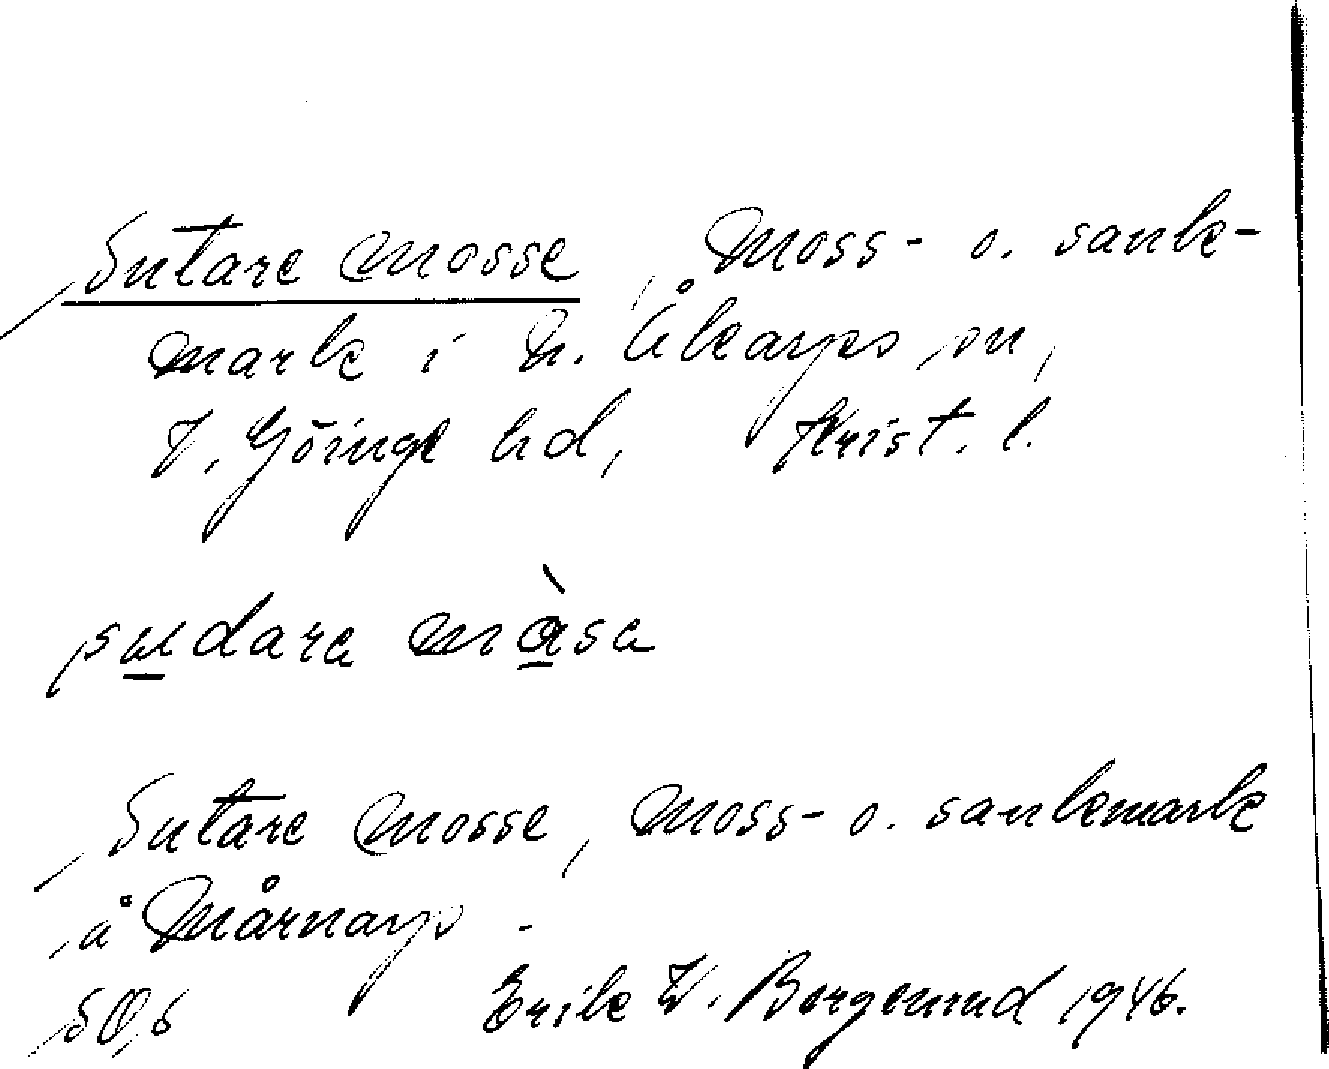 Sutare mosse, Moss- o. sank-
mark i N. Åkarps sn,
V. Göinge hd, Krist. l.
sudara måsa
Sutare mosse, moss- o. sankmark
å Mårnarp.
SO, 6 Erik W. Bergelund 1946.